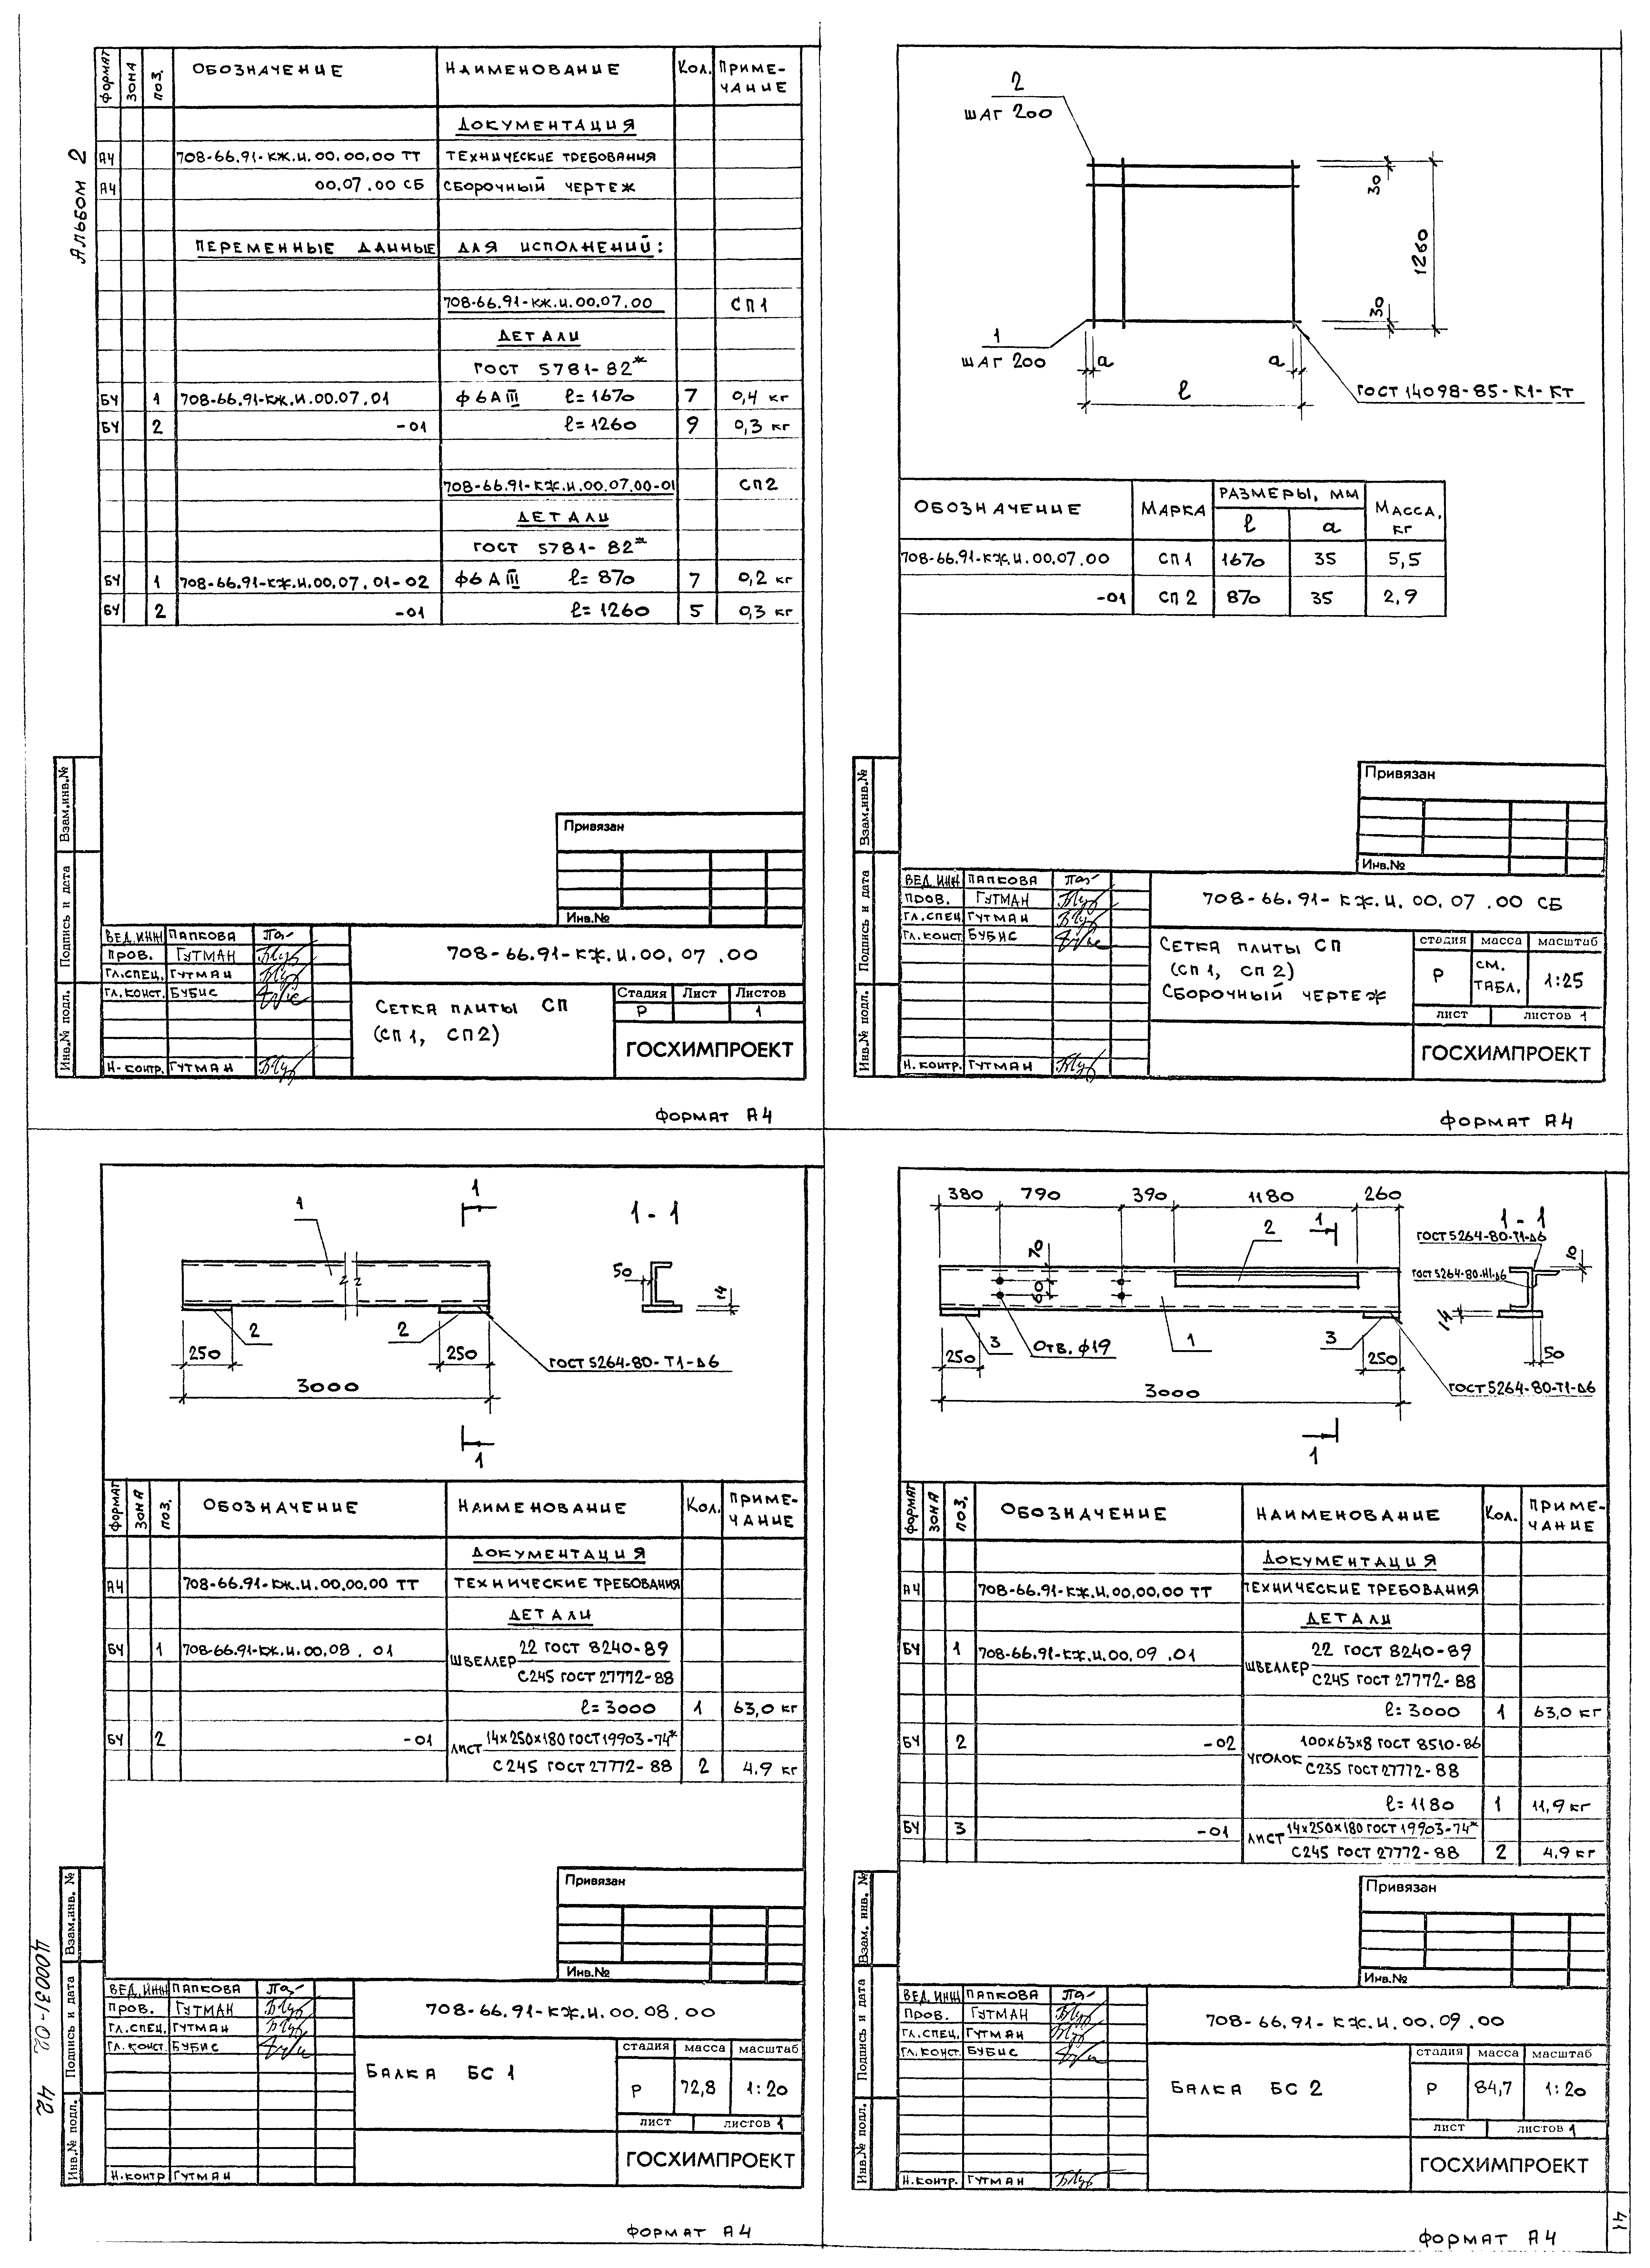 Альбом 2
ФОРМАТ ЗОНА ПОЗ. ОБОЗНАЧЕНИЕ НАИМЕНОВАНИЕ КОЛ. ПРИМЕ-
ЧАНИЕ
ДОКУМЕНТАЦИЯ
А4 708-66.91-КЖ.И.00.00.00 ТТ ТЕХНИЧЕСКИЕ ТРЕБОВАНИЯ
А4 00.07.00 СБ СБОРОЧНЫЙ ЧЕРТЕЖ
ПЕРЕМЕННЫЕ ДАННЫЕ ДЛЯ ИСПОЛНЕНИЙ:
708-66.91-КЖ.И.00.07.00 СП1
ДЕТАЛИ
ГОСТ 5781-82*
БЧ 1 708-66.91-КЖ.И.00.07.01 Ф6АIII ℓ=1670 7 0,4 кг
БЧ 2 -01 ℓ=1260 9 0,3 кг
708-66.91-КЖ.И.00.07.00-01 СП2
ДЕТАЛИ
ГОСТ 5781-82*
БЧ 1 708-66.91-КЖ.И.00.07.01-02 Ф6АIII ℓ=870 7 0,2 кг
БЧ 2 -01 ℓ=1260 5 0,3 кг
Взам.инв.№
Подпись и дата
Инв.№ подл.
Привязан
Инв.№
ВЕД.ИНЖ ПАПКОВА
ПРОВ. ГУТМАН
ГЛ.СПЕЦ. ГУТМАН
ГЛ.КОНСТ. БУБИС
Н-КОНТР. ГУТМАН
708-66.91-КЖ.И.00.07.00
СЕТКА ПЛИТЫ СП
(СП1, СП2)
Стадия Лист Листов
Р 1
ГОСХИМПРОЕКТ
ФОРМАТ А4
2
ШАГ 200
1
ШАГ 200
30
1260
30
а
а
ℓ
ГОСТ 14098-85-К1-КТ
ОБОЗНАЧЕНИЕ МАРКА РАЗМЕРЫ, ММ МАССА, КГ
ℓ а
708-66.91-КЖ.И.00.07.00 СП1 1670 35 5,5
-01 СП2 870 35 2,9
Взам.инв.№
Подпись и дата
Инв.№ подл.
Привязан
Инв.№
ВЕД.ИНЖ ПАПКОВА
ПРОВ. ГУТМАН
ГЛ.СПЕЦ ГУТМАН
ГЛ.КОНСТ БУБИС
Н.КОНТР. ГУТМАН
708-66.91-КЖ.И.00.07.00 СБ
СЕТКА ПЛИТЫ СП
(СП1, СП2)
СБОРОЧНЫЙ ЧЕРТЕЖ
стадия масса масштаб
Р СМ. ТАБЛ. 1:25
лист листов 1
ГОСХИМПРОЕКТ
ФОРМАТ А4
1
1
1-1
2
2
250
250
3000
1
50
14
ГОСТ 5264-80-Т1-Δ6
ФОРМАТ ЗОНА ПОЗ. ОБОЗНАЧЕНИЕ НАИМЕНОВАНИЕ КОЛ. ПРИМЕ-
ЧАНИЕ
ДОКУМЕНТАЦИЯ
А4 708-66.91-КЖ.И.00.00.00 ТТ ТЕХНИЧЕСКИЕ ТРЕБОВАНИЯ
ДЕТАЛИ
БЧ 1 708-66.91-КЖ.И.00.08.01 ШВЕЛЛЕР 22 ГОСТ 8240-89
С245 ГОСТ 27772-88
ℓ=3000 1 63,0 кг
БЧ 2 -01 ЛИСТ 14х250х180 ГОСТ 19903-74*
С245 ГОСТ 27772-88 2 4.9 кг
Взам.инв. №
Подпись и дата
Инв.№ подл.
400031-02 42
Привязан
Инв.№
ВЕД.ИНЖ ПАПКОВА
ПРОВ. ГУТМАН
ГЛ.СПЕЦ. ГУТМАН
ГЛ.КОНСТ. БУБИС
Н.КОНТР ГУТМАН
708-66.91-КЖ.И.00.08.00
БАЛКА БС 1
стадия масса масштаб
Р 72,8 1:20
лист листов 1
ГОСХИМПРОЕКТ
ФОРМАТ А4
380 790 390 1180 260
1
2
1-1
ГОСТ 5264-80-Т1-Δ6
ГОСТ 5264-80-Н1-Δ6
10
70
60
3
ОТВ. Ф19
1
3
14
50
250
250
3000
ГОСТ 5264-80-Т1-Δ6
1
ФОРМАТ ЗОНА ПОЗ. ОБОЗНАЧЕНИЕ НАИМЕНОВАНИЕ КОЛ. ПРИМЕ-
ЧАНИЕ
ДОКУМЕНТАЦИЯ
А4 708-66.91-КЖ.И.00.00.00 ТТ ТЕХНИЧЕСКИЕ ТРЕБОВАНИЯ
ДЕТАЛИ
БЧ 1 708-66.91-КЖ.И.00.09.01 ШВЕЛЛЕР 22 ГОСТ 8240-89
С245 ГОСТ 27772-88
ℓ=3000 1 63,0 кг
БЧ 2 -02 УГОЛОК 100х63х8 ГОСТ 8510-86
С235 ГОСТ 27772-88
ℓ=1180 1 11,9 кг
БЧ 3 -01 ЛИСТ 14х250х180 ГОСТ 19903-74*
С245 ГОСТ 27772-88 2 4.9 кг
Взам. инв. №
Подпись и дата
Инв.№ подл.
Привязан
Инв.№
ВЕД.ИНЖ ПАПКОВА
ПРОВ. ГУТМАН
ГЛ.СПЕЦ. ГУТМАН
ГЛ.КОНСТ. БУБИС
Н.КОНТР. ГУТМАН
708-66.91-КЖ.И.00.09.00
БАЛКА БС 2
стадия масса масштаб
Р 84,7 1:20
лист листов 1
ГОСХИМПРОЕКТ
ФОРМАТ А4
41